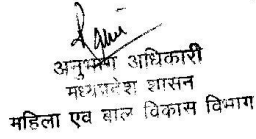 अनुभाग अधिकारी
मध्यप्रदेश शासन
महिला एव बाल विकास विभाग